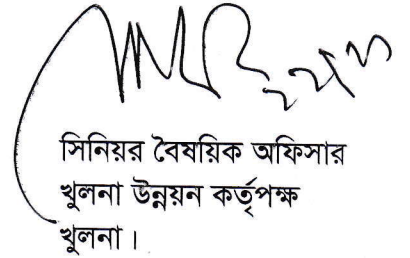 সিনিয়র বৈষয়িক অফিসার
খুলনা উন্নয়ন কর্তৃপক্ষ
খুলনা।